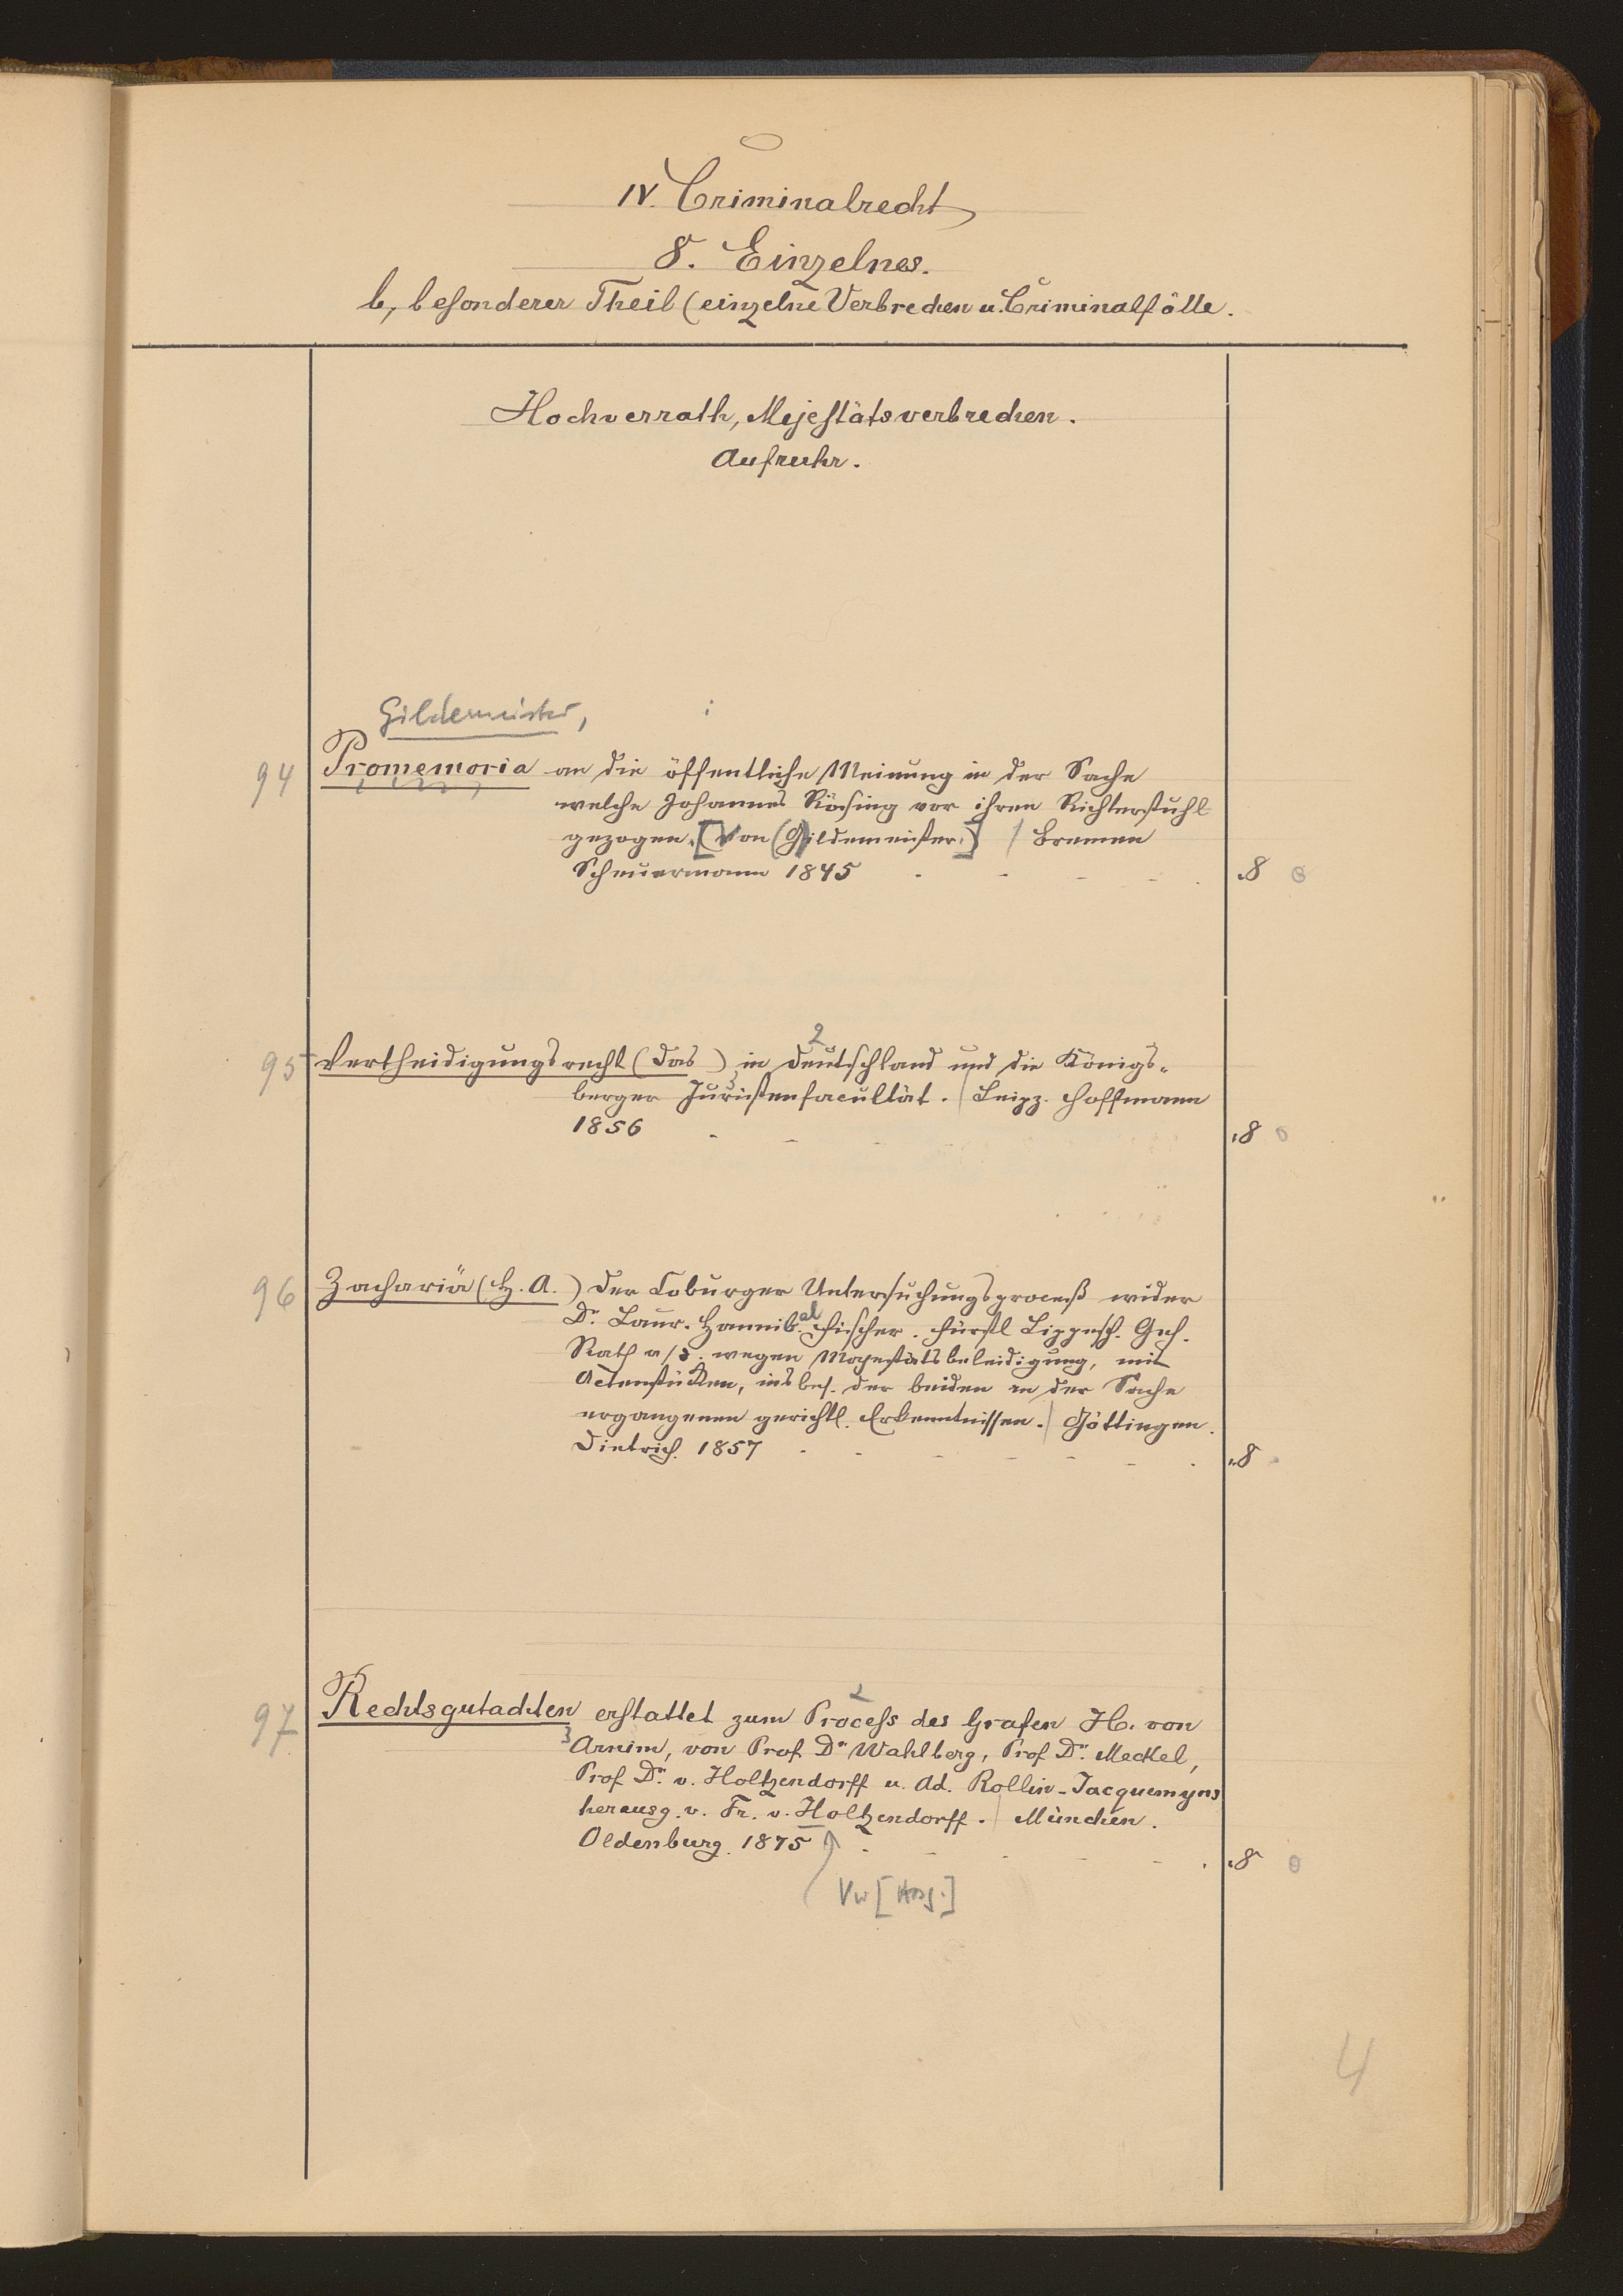 IV. Criminalrecht
8. Einzelnes.
b, besonderer Theil (einzelne Verbrechen u. Criminalfälle.
Hochverrath, Majestätsverbrechen.
Aufruhr.
Gildemeister, :
94 Promemoria an die öffentliche Meinung in der Sache
welche Johannes Rösing vor ihren Richterstuhl
gezogen. [Von (Gildemeister.] / Bremen
Scheuermann 1845 - - - - . ,8 0
2
95 Vertheidigungsrecht (das) in Deutschland und die Königs-
3
berger Juristenfacultät. / Leipz. Hoffmann
1856 - - - ,8 0
96 Zachariä (H. A.) Der Coburger Untersuchungsproceß wider
Dr. Laur. Hannibal Fischer. Fürstl Lippesch. Geh.
Rath a/D. wegen Majestätsbeleidigung, mit
Actenstücken, insbes. der beiden in der Sache
ergangenen gerichtl. Erkenntnissen. / Göttingen.
Dietrich. 1857 - - - - - - . ,8
2
97 Rechtsgutachten erstattet zum Process des Grafen H. von
3 Arnim, von Prof. Dr. Wahlberg, Prof. Dr. Merkel,
Prof. Dr. v. Holtzendorff u. Ad. Rollin-Jacquemyns
herausg. v. Fr. v. Holtzendorff. / München.
Oldenburg. 1875 - - - - . ,8 0
Vw [Hrsg.]
4